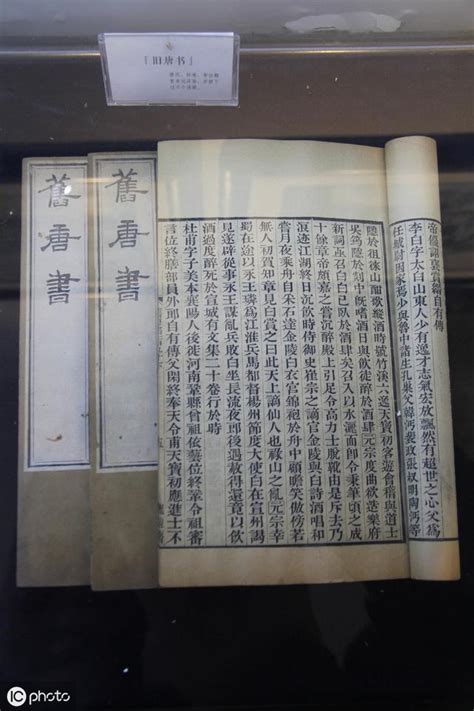 「旧唐书」
舊唐書
舊唐書
李白字太白山東人少有逸才志氣宏放飄然有超世之心父為
任城尉因家焉少與魯中諸生孔巢父韓沔裴政張叔明陶沔等
隱於徂徠山酣歌縱酒時號竹溪六逸天寶初客遊會稽與道士
吳筠隱於剡中既嗜酒日與飲徒醉於酒肆元宗度曲欲造樂府
新詞亟召白白已臥於酒肆矣召入以水灑面即令秉筆頃之成
十餘章帝頗嘉之嘗沉醉殿上引足令高力士脫靴由是斥去乃
浪迹江湖終日沉飲時侍御史崔宗之謫官金陵與白詩酒唱和
嘗月夜乘舟自采石達金陵白衣宮錦袍於舟中顧瞻笑傲傍若
無人初賀知章見白賞之曰此天上謫仙人也祿山之亂元宗幸
蜀在途以永王璘為江淮兵馬都督揚州節度大使白在宣州謁
見遂辟從事永王謀亂兵敗白坐長流夜郎後遇赦得還竟以飲
酒過度醉死於宣城有文集二十卷行於時
杜甫字子美本襄陽人後徙河南鞏縣曾祖依藝位終鞏令祖審
言位終膳部員外郎自有傳父閑終奉天令甫天寶初應進士不
IC photo